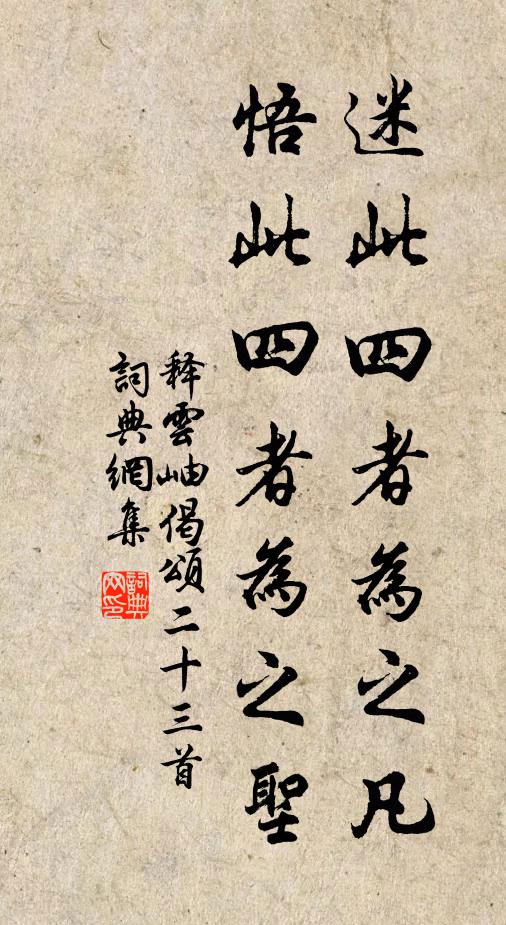 迷此四者為之凡
悟此四者為之聖
释雲岫偈頌二十三首
詞典網集
詞典网印